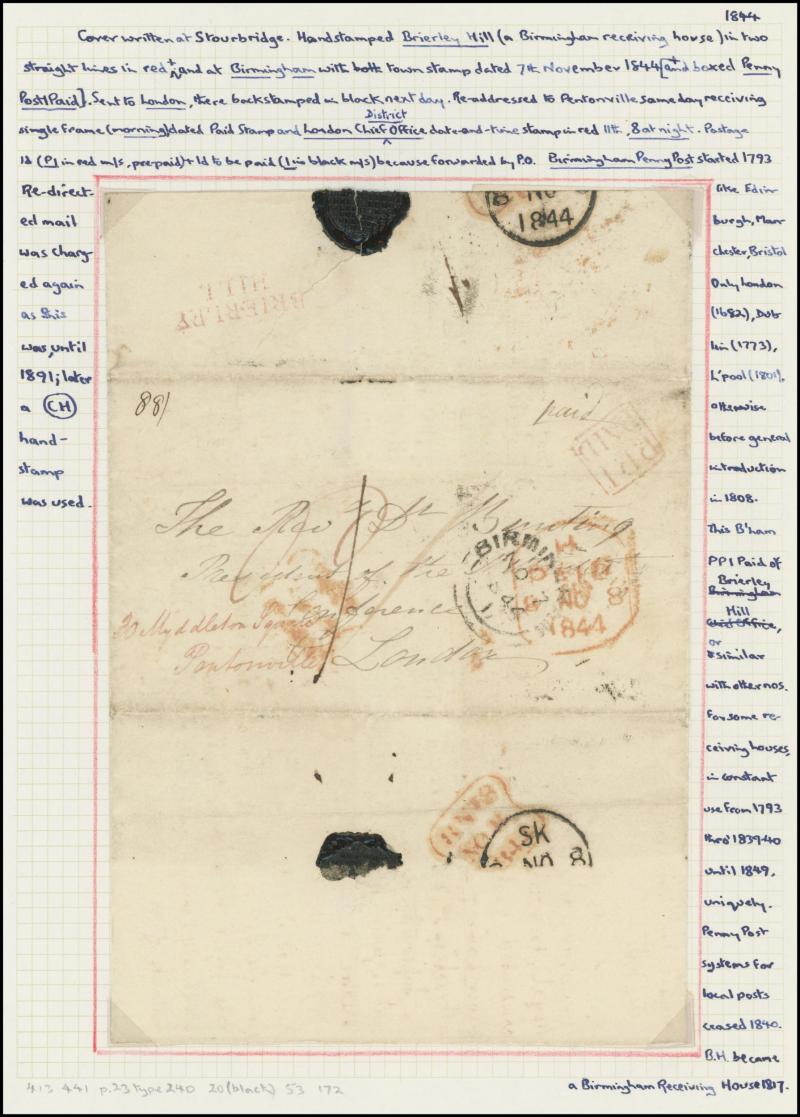 1844
Cover written at Stourbridge. Handstamped Brierley Hill (a Birmingham receiving house) in two
straight lines in red + and at Birmingham with both town stamp dated 7th November 1844 [+ and boxed Penny
Post 1 Paid]. Sent to London, there backstamped in black next day. Re-addressed to Pentonville same day receiving
District
single frame (morning) dated Paid Stamp and London Chief Office date-and-time stamp in red 11th, 8 at night. Postage
1d (P1 in red m/s, pre-paid) + 1d to be paid (1 in black m/s) because forwarded by P.O. Birmingham Penny Post started 1793
Re-direct-
ed mail
was charg-
ed again
as this
was, until
1891; later
a CH
hand-
stamp
was used.
like Edin-
burgh, Man-
chester, Bristol
Only London
(1682), Dub-
lin (1773),
L'pool (1801),
otherwise
before general
introduction
in 1808.
This B'ham
PP1 Paid of
Brierley
Birmingham
Hill
Chief Office,
or
similar
with other nos.
for some re-
ceiving houses,
in constant
use from 1793
thro' 1839-40
until 1849,
uniquely.
Penny Post
systems for
local posts
ceased 1840.
B.H. became
a Birmingham Receiving House 1817.
8 NO 8
1844
BRIERLEY
HILL
88/
paid
P.P. 1
PAID
The Revd Dr Bunting
President of the
Conference
London
30 Myddleton Square
Pentonville
BIRMINGHAM
NO 7
1844
H
PAID
8 NO 8
1844
SK
NO 8
413 441 p.23 type 240 20 (black) 53 172